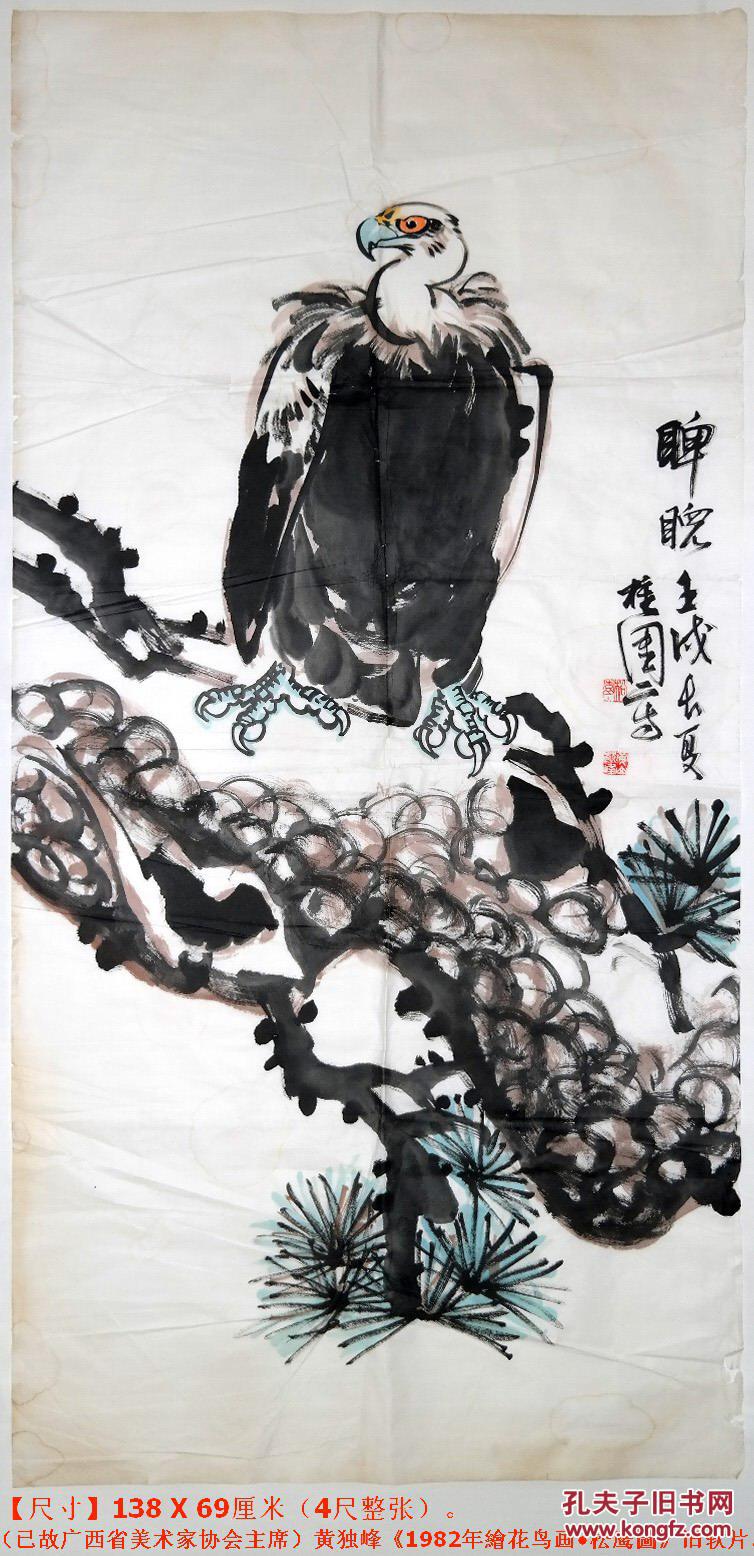 睥睨
壬戌大夏
桂園寫
【尺寸】138 X 69厘米（4尺整张）。
（已故广西省美术家协会主席）黄独峰《1982年繪花鸟画•松鹰圖》旧软片
孔夫子旧书网
www.kongfz.com